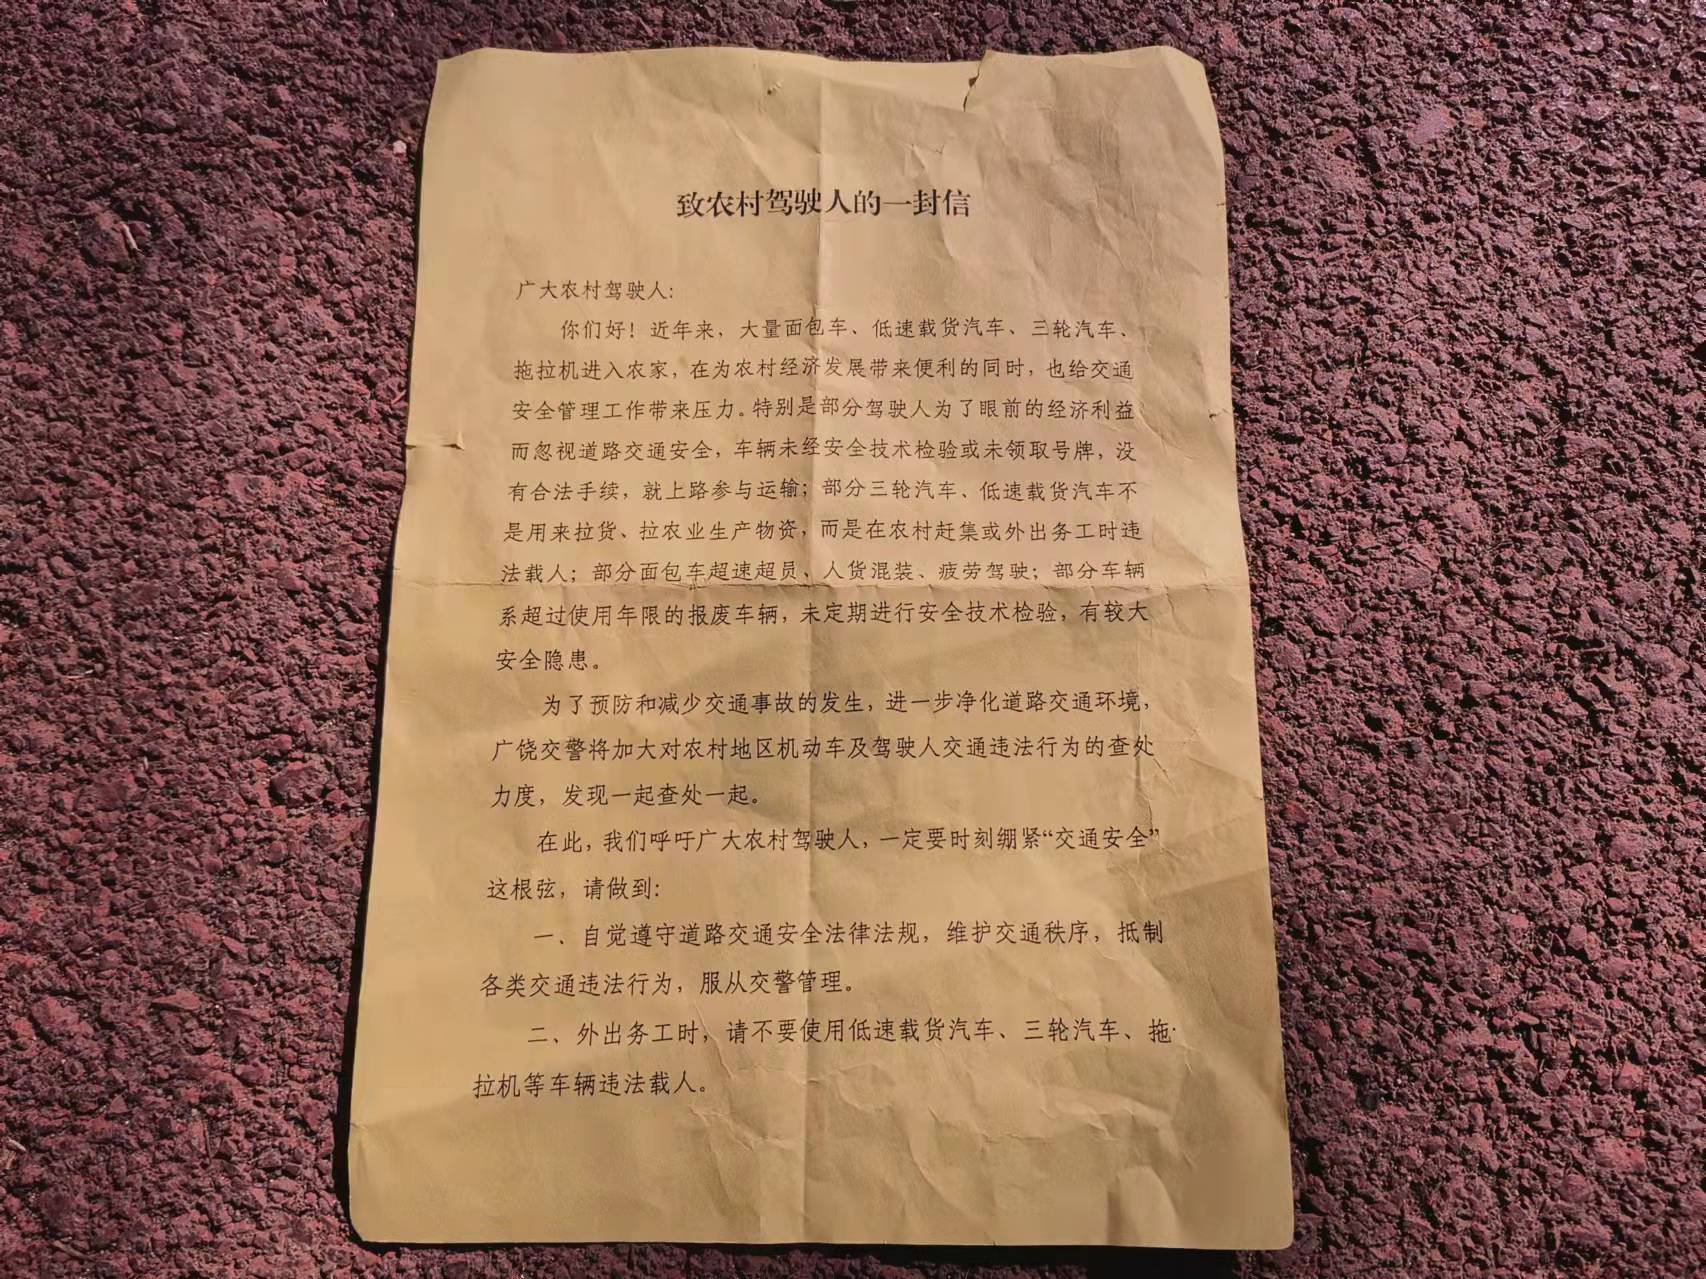 致农村驾驶人的一封信
广大农村驾驶人:
你们好！近年来，大量面包车、低速载货汽车、三轮汽车、
拖拉机进入农家，在为农村经济发展带来便利的同时，也给交通
安全管理工作带来压力。特别是部分驾驶人为了眼前的经济利益
而忽视道路交通安全，车辆未经安全技术检验或未领取号牌，没
有合法手续，就上路参与运输；部分三轮汽车、低速载货汽车不
是用来拉货、拉农业生产物资，而是在农村赶集或外出务工时违
法载人；部分面包车超速超员、人货混装、疲劳驾驶；部分车辆
系超过使用年限的报废车辆，未定期进行安全技术检验，有较大
安全隐患。
为了预防和减少交通事故的发生，进一步净化道路交通环境，
广饶交警将加大对农村地区机动车及驾驶人交通违法行为的查处
力度，发现一起查处一起。
在此，我们呼吁广大农村驾驶人，一定要时刻绷紧“交通安全”
这根弦，请做到:
一、自觉遵守道路交通安全法律法规，维护交通秩序，抵制
各类交通违法行为，服从交警管理。
二、外出务工时，请不要使用低速载货汽车、三轮汽车、拖
拉机等车辆违法载人。